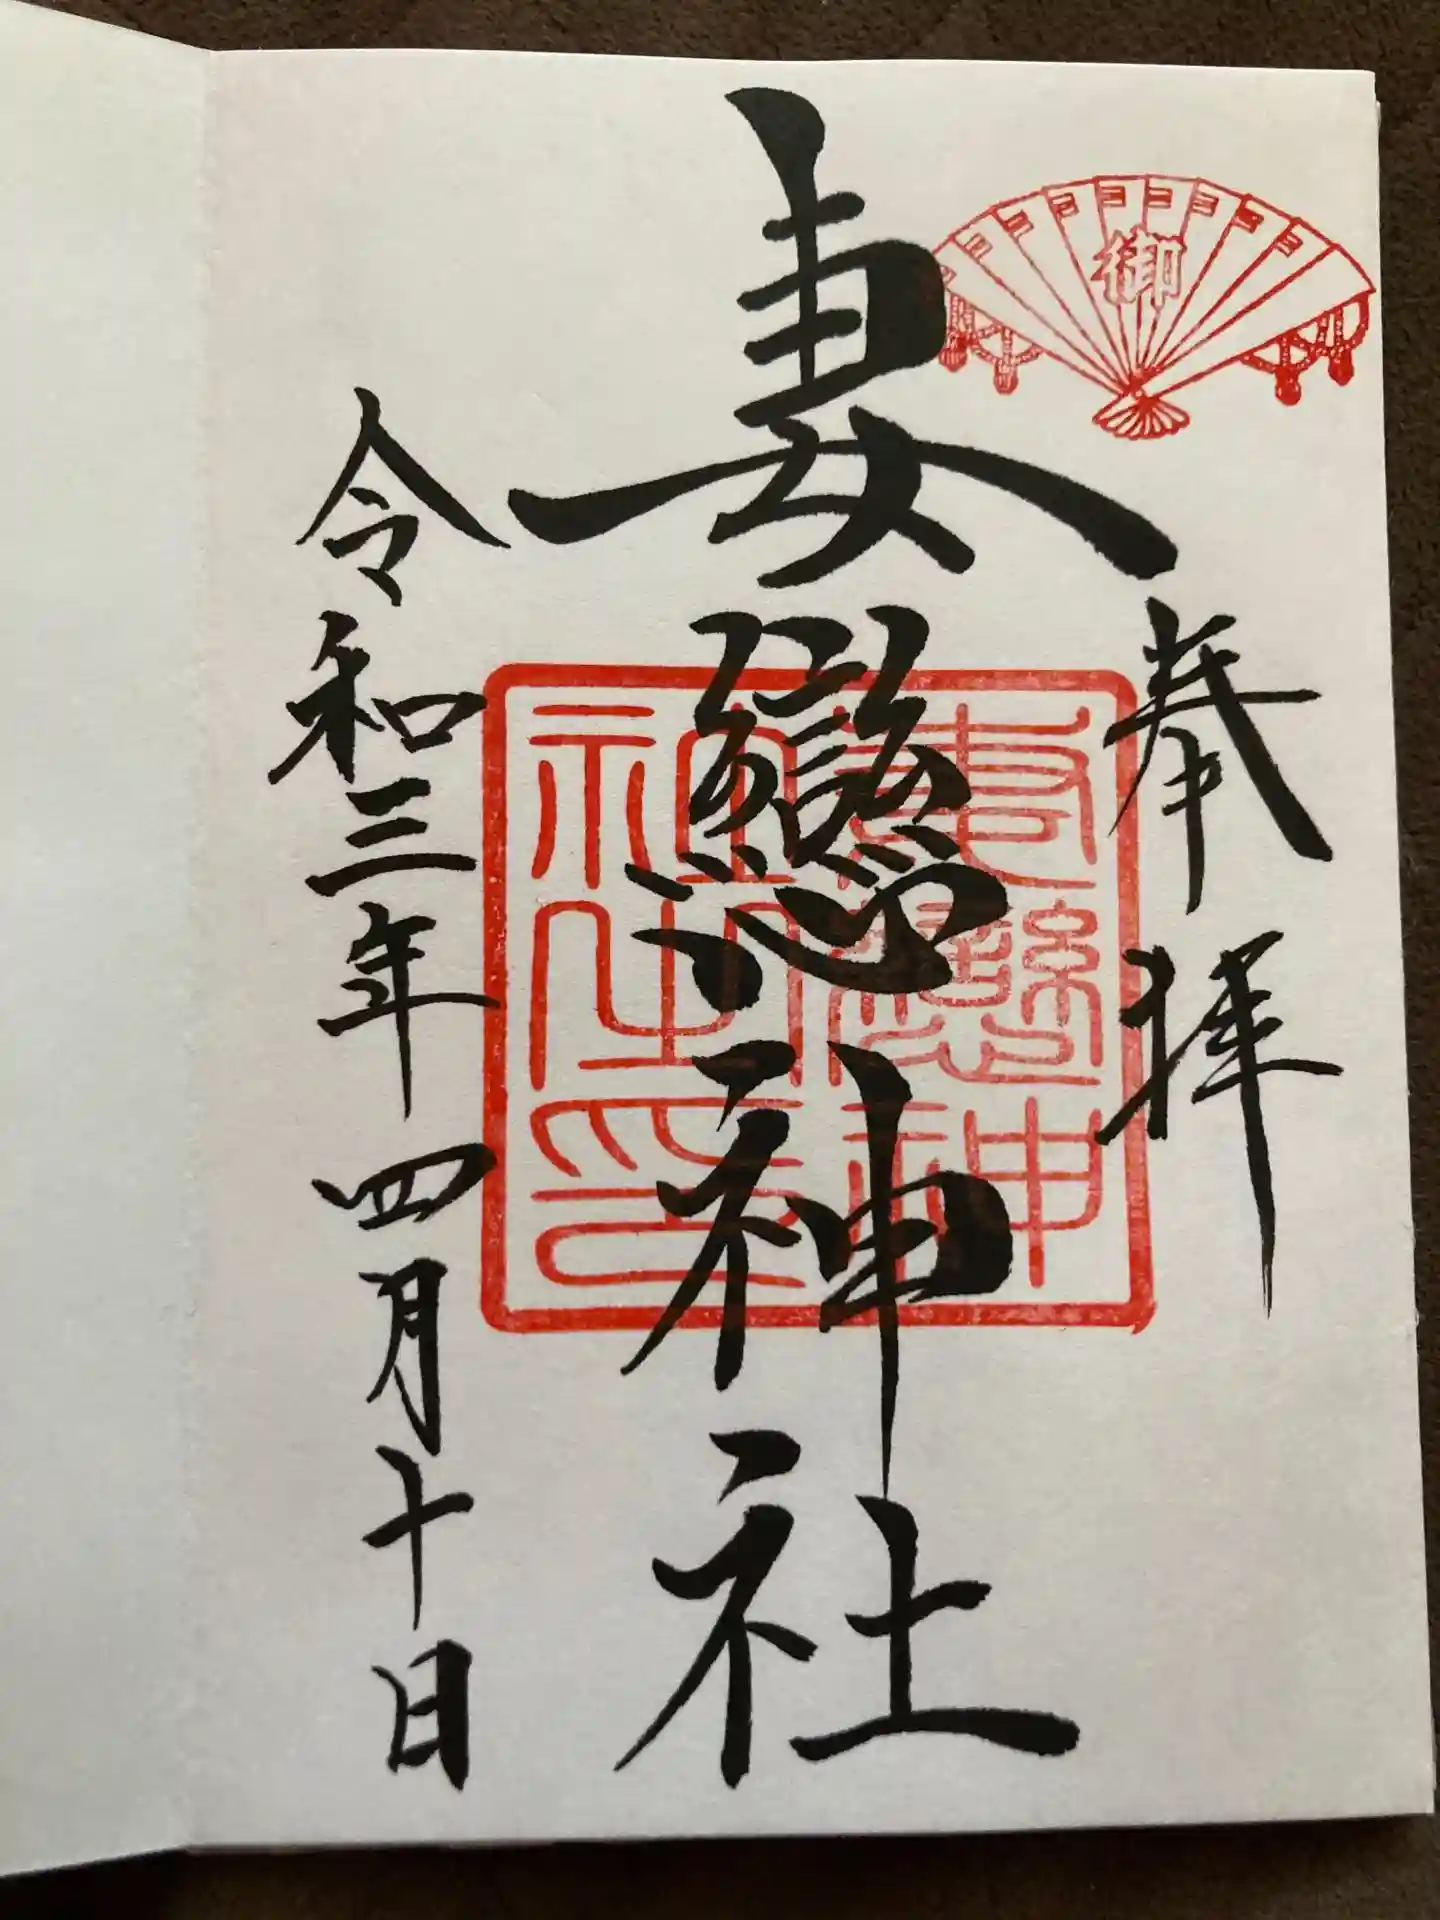 御
奉拝
妻戀神社
妻戀神
社之印
令和三年四月十日